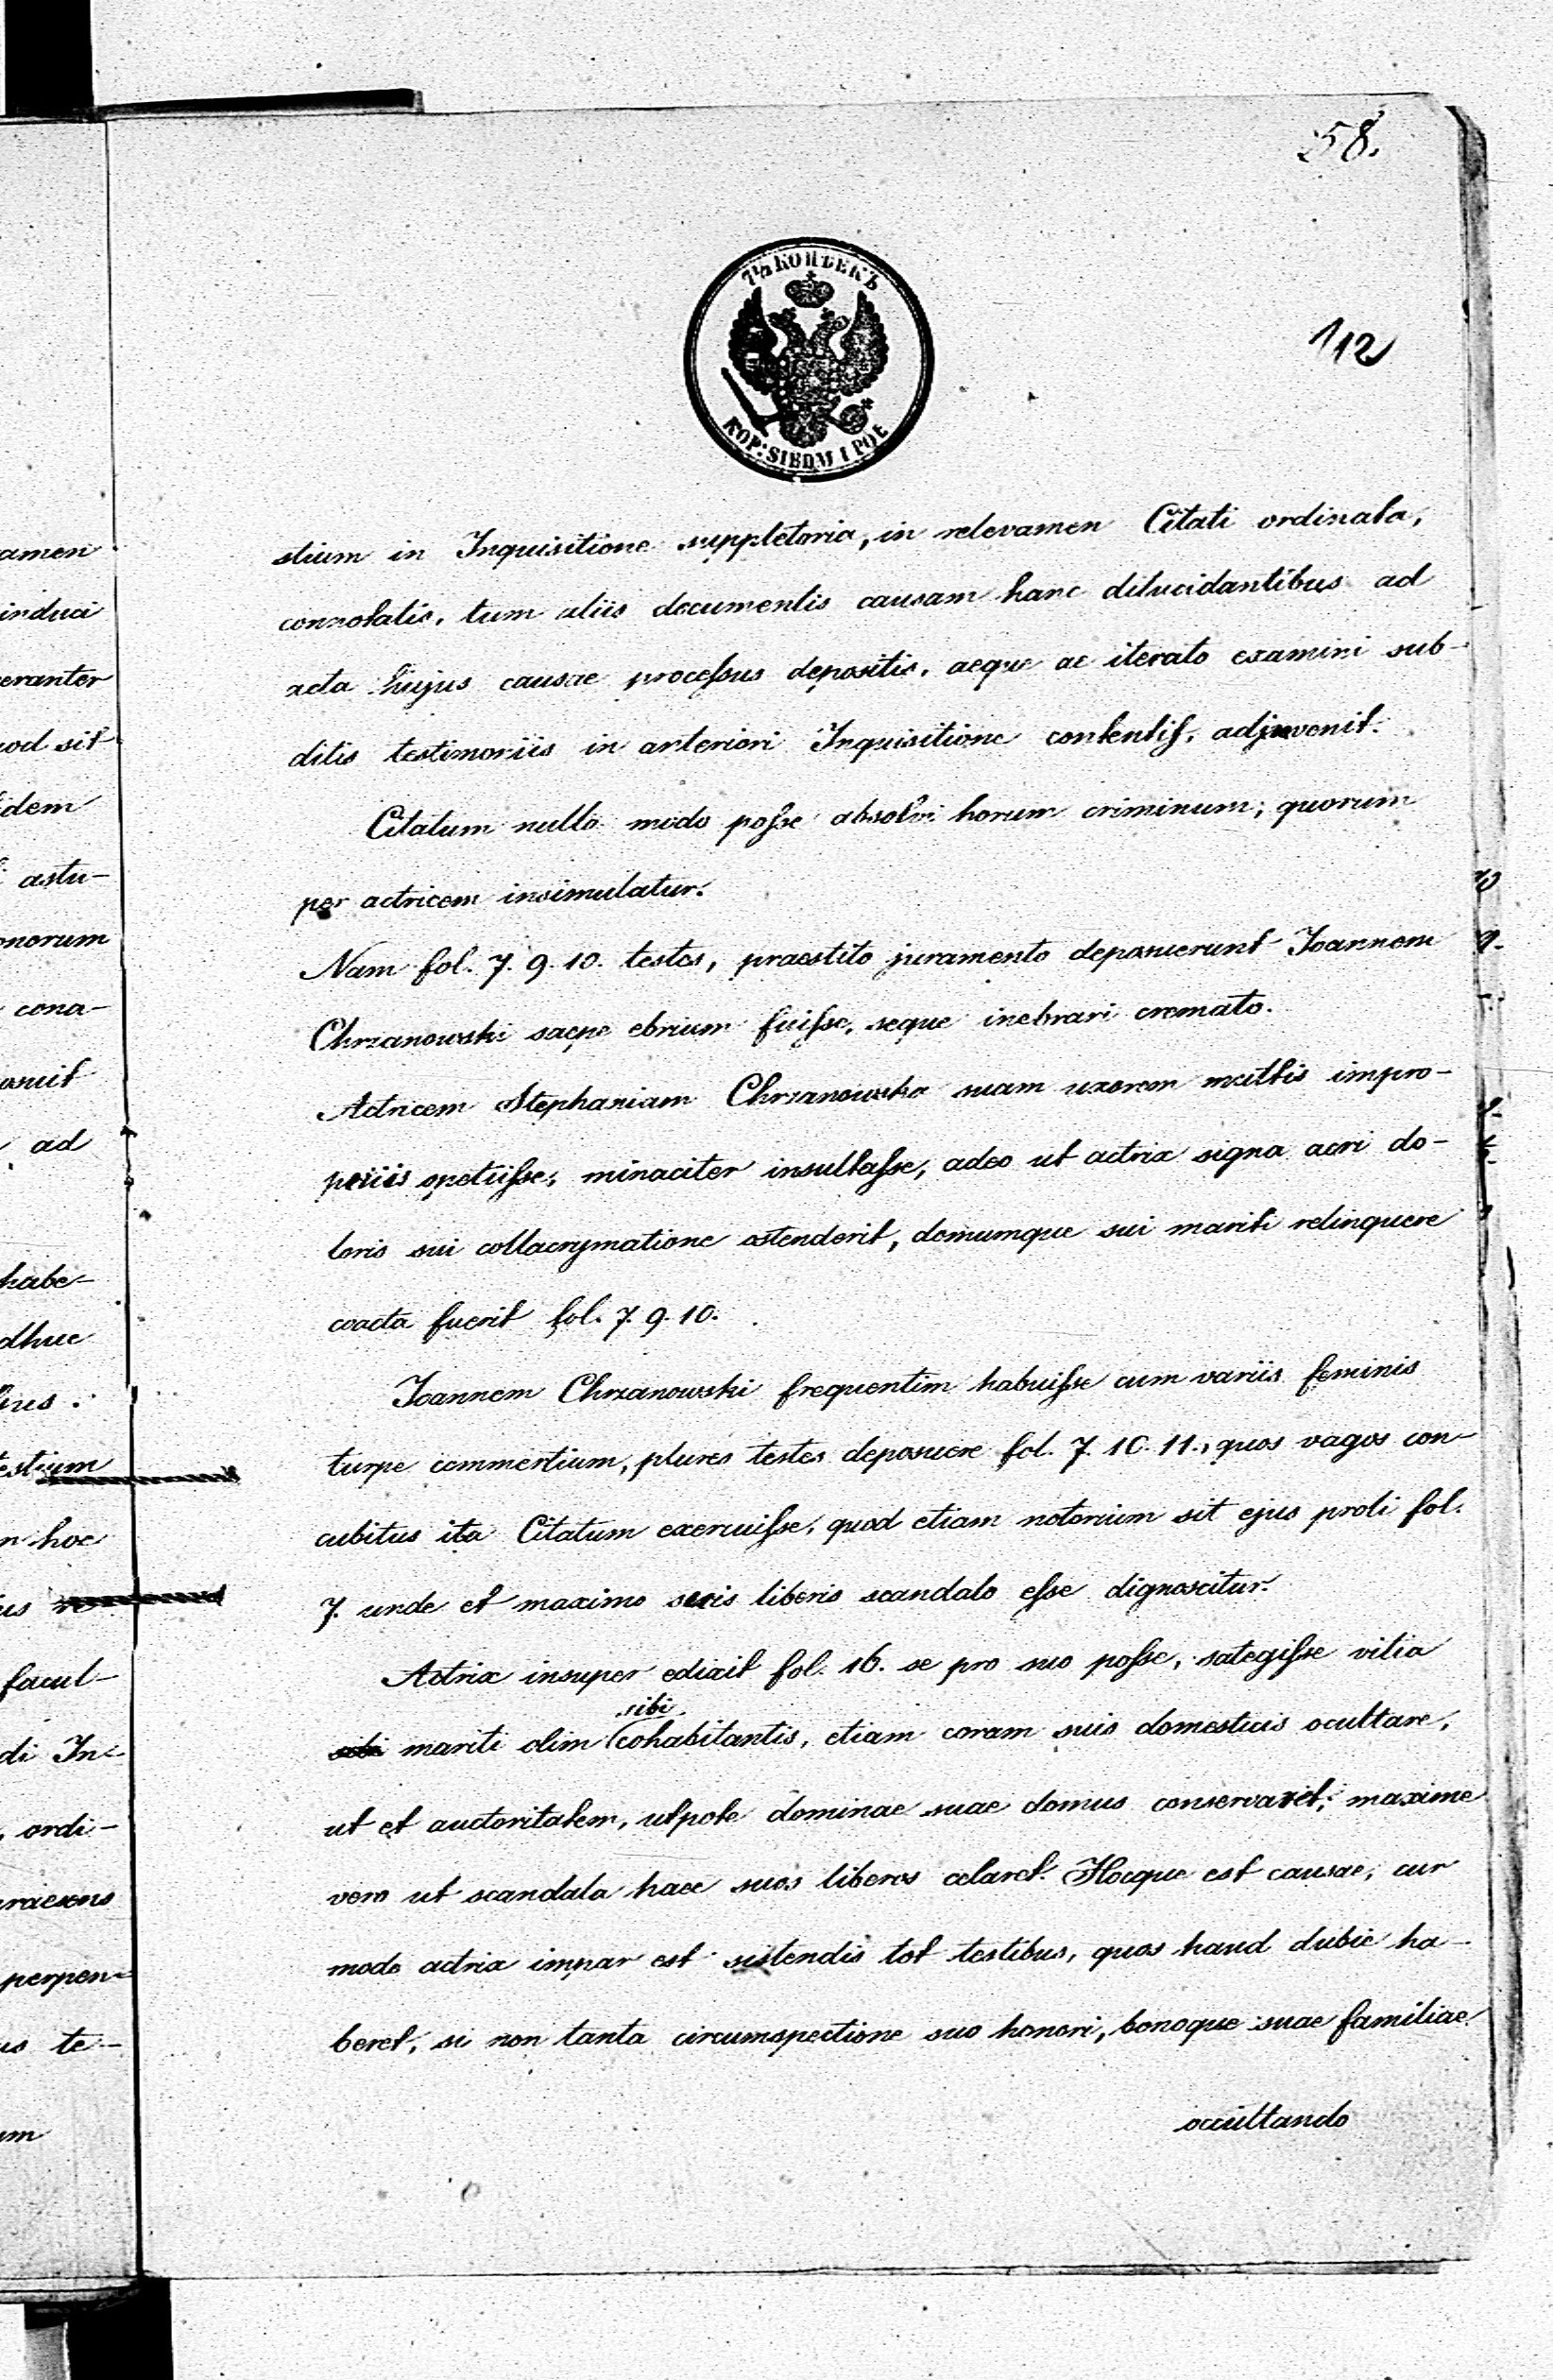 58.
7½ КОПѢЕКЪ
KOP: SIEDM I POŁ
112
stium in Inquisitione suppletoria, in relevamen Citati ordinata,
connotatis, tum aliis documentis causam hanc dilucidantibus ad
acta hujus causae processus depositis, aeque ac iterato examini sub-
ditis testimoniis in anteriori Inquisitione contentis, adjuvenit.
Citatum nullo modo posse absolvi horum criminum; quorum
per actricem insimulatur.
Nam fol. 7. 9. 10. testes, praestito juramento deposuerunt Joannem
Chrzanowski saepe ebrium fuisse, seque inebrari cremato.
Actricem Stephaniam Chrzanowska suam uxorem multis impro-
periis opetiisse, minaciter insultasse, adeo ut actrix signa acri do-
loris sui collacrymatione ostenderit, domumque sui mariti relinquere
coacta fuerit fol. 7. 9. 10.
Joannem Chrzanowski frequentim habuisse cum variis feminis
turpe commertium, plures testes deposuere fol. 7. 10. 11., quos vagos con-
cubitus ita Citatum exercuisse, quod etiam notorium sit ejus proli fol.
7. unde et maximo suis liberis scandalo esse dignoscitur.
Actrix insuper edixit fol. 16. se pro suo posse, sategisse vitia
sibi
mariti olim cohabitantis, etiam coram suis domesticis ocultare,
ut et auctoritatem, utpote dominae suae domus conservaret; maxime
vero ut scandala haec suos liberos celaret. Hocque est causae, cur
modo actrix impar est sistendis tot testibus, quos haud dubie ha-
beret, si non tanta circumspectione suo honori, bonoque suae familiae
occultando
amen
induci
eranter
od sit
idem
astu-
onorum
cona-
osuit
ad
habe-
dhuc
estium
hoc
facul-
di In-
ordi-
raesens
perpen-
te-